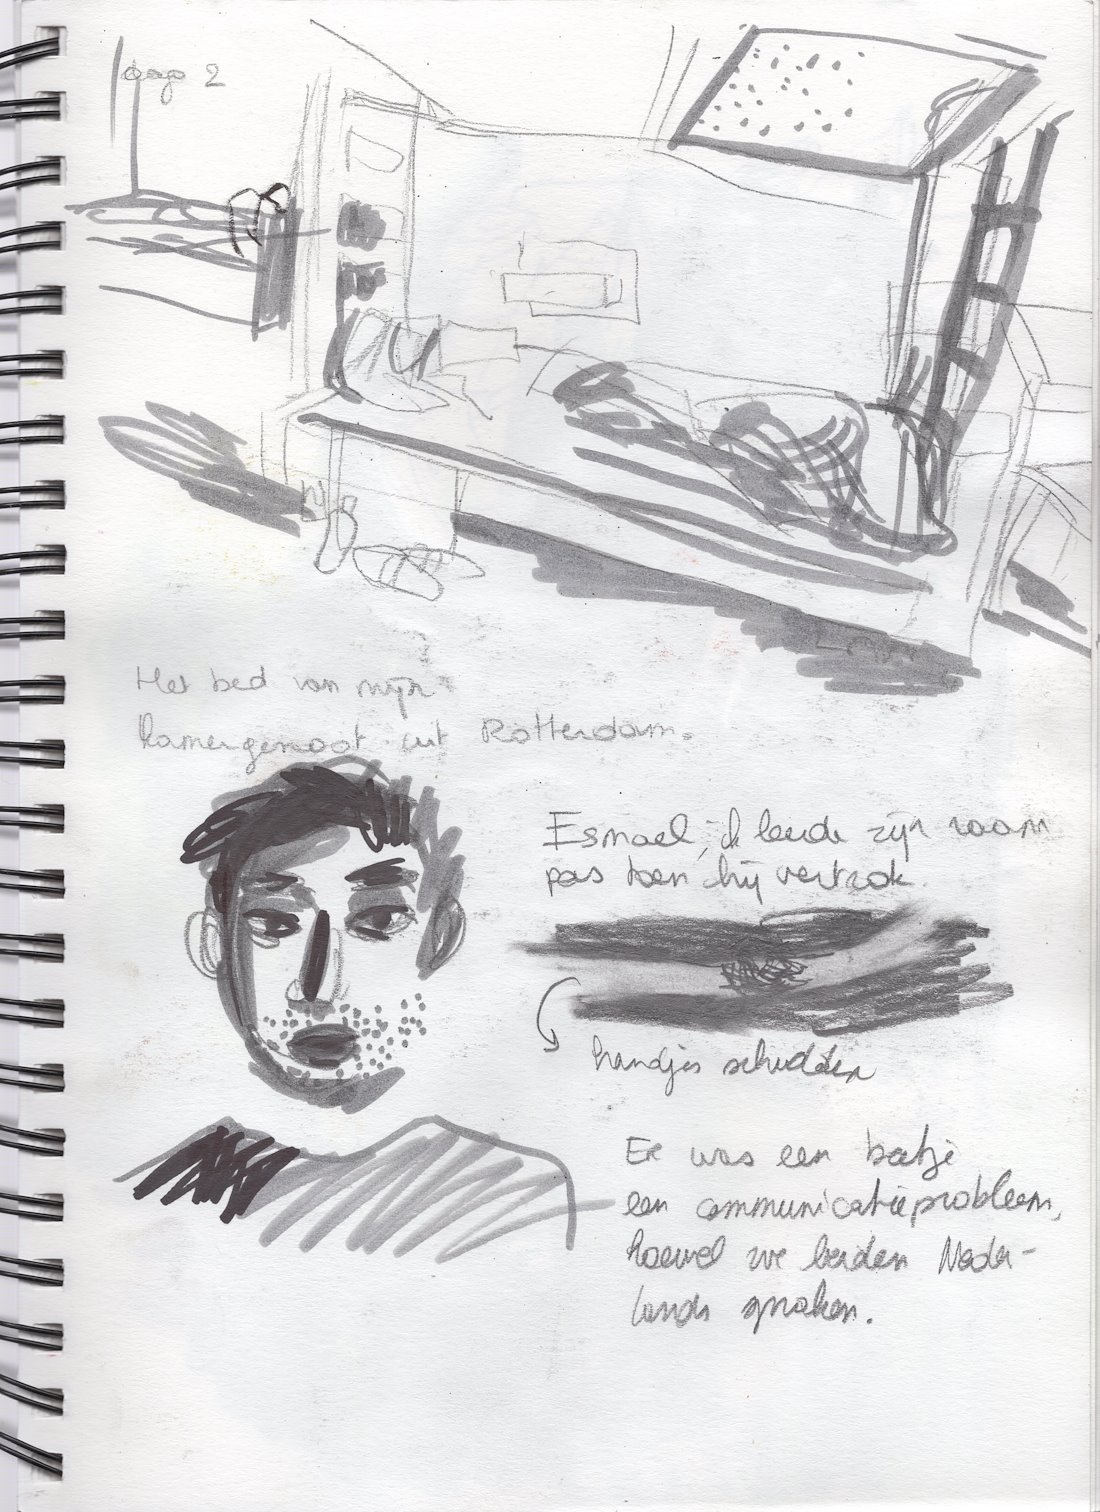 dag 2
Het bed van mijn
kamergenoot uit Rotterdam.
Esmael, ik leerde zijn naam
pas toen hij vertrok.
handjes schudden
Er was een beetje
een communicatieprobleem,
hoewel we beiden Neder-
lands spraken.